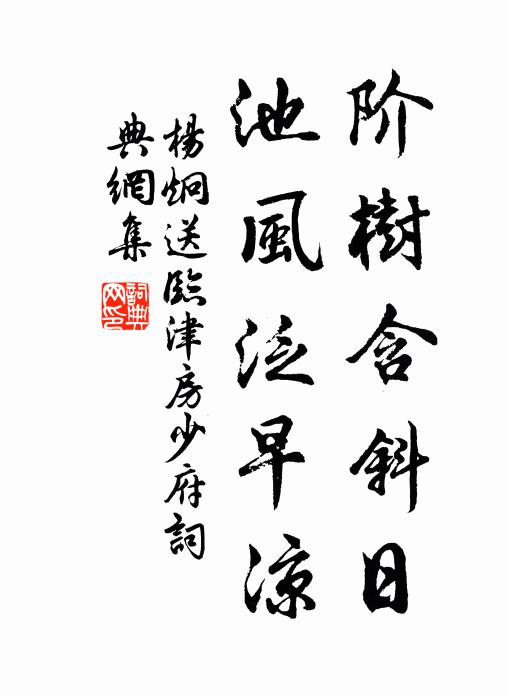 阶樹含斜日
池風泛早凉
楊炯送臨津房少府詞
典網集
詞典网印